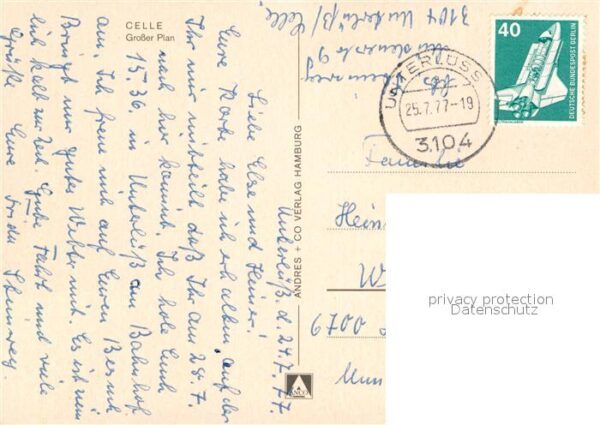 CELLE
Großer Plan
Unterlüß d. 24.7.77
Liebe Else und Heiner!
Eure Karte habe ich erhalten, auf der
Ihr mir mitteilt daß Ihr am 28.7.
nach hier kommt. Ich hole Euch
15.36. in Unterlüß am Bahnhof
ab. Ich freue mich auf Euren Besuch
Bringt nur gutes Wetter mit. Es ist
lich kalt zur Zeit. Gute Fahrt und viele
Grüße Eure Frida
ANDRES + CO VERLAG HAMBURG
ANCO
3104 Unterlüß/Celle
40
DEUTSCHE BUNDESPOST BERLIN
UNTERLÜSS
25.7.77-19
3104
Familie
Hein
W
privacy protection
Datenschutz